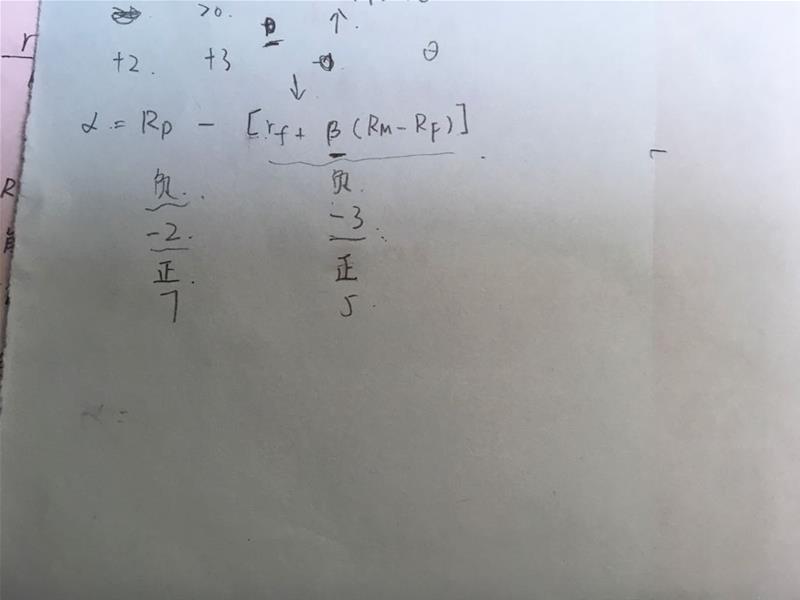 >0. ↑.
+2. +3 θ
↓
α = Rp - [rf + β (RM - RF)]
负. 负.
-2. -3
正. 正
7 5.
α =